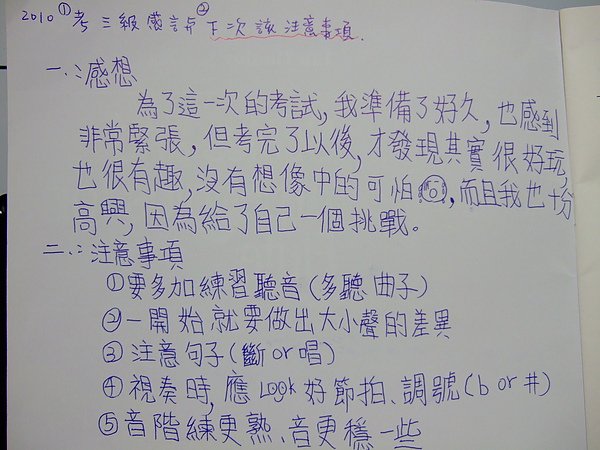 2010 ①考三級感言與②下次該注意事項.
一.:感想
為了這一次的考試,我準備了好久,也感到
非常緊張,但考完了以後,才發現其實很好玩,
也很有趣,沒有想像中的可怕,而且我也十分
高興,因為給了自己一個挑戰。
二.:注意事項
①要多加練習聽音(多聽曲子)
②一開始就要做出大小聲的差異
③注意句子(斷or唱)
④視奏時,應Look好節拍、調號(b or #)
⑤音階練更熟、音更穩一些